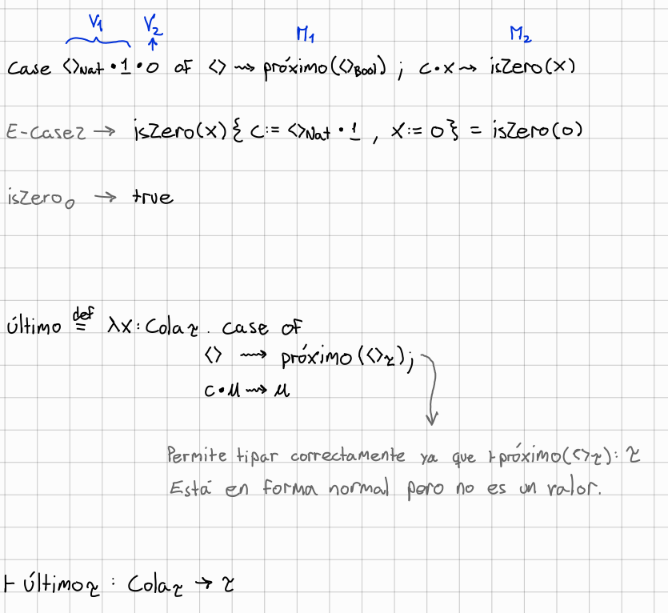 V₁ V₂ M₁ M₂
case <>Nat • 1 • 0 of <> ⇝ próximo(<>Bool) ; c•x ⇝ isZero(x)
E-Case2 → isZero(x){ c := <>Nat • 1 , x := 0 } = isZero(0)
isZero₀ → true
último ≝ λx : Cola τ . case of
<> ⇝ próximo(<>τ);
c•u ⇝ u
Permite tipar correctamente ya que ⊢ próximo(<>τ) : τ
Está en forma normal pero no es un valor.
⊢ último τ : Cola τ → τ